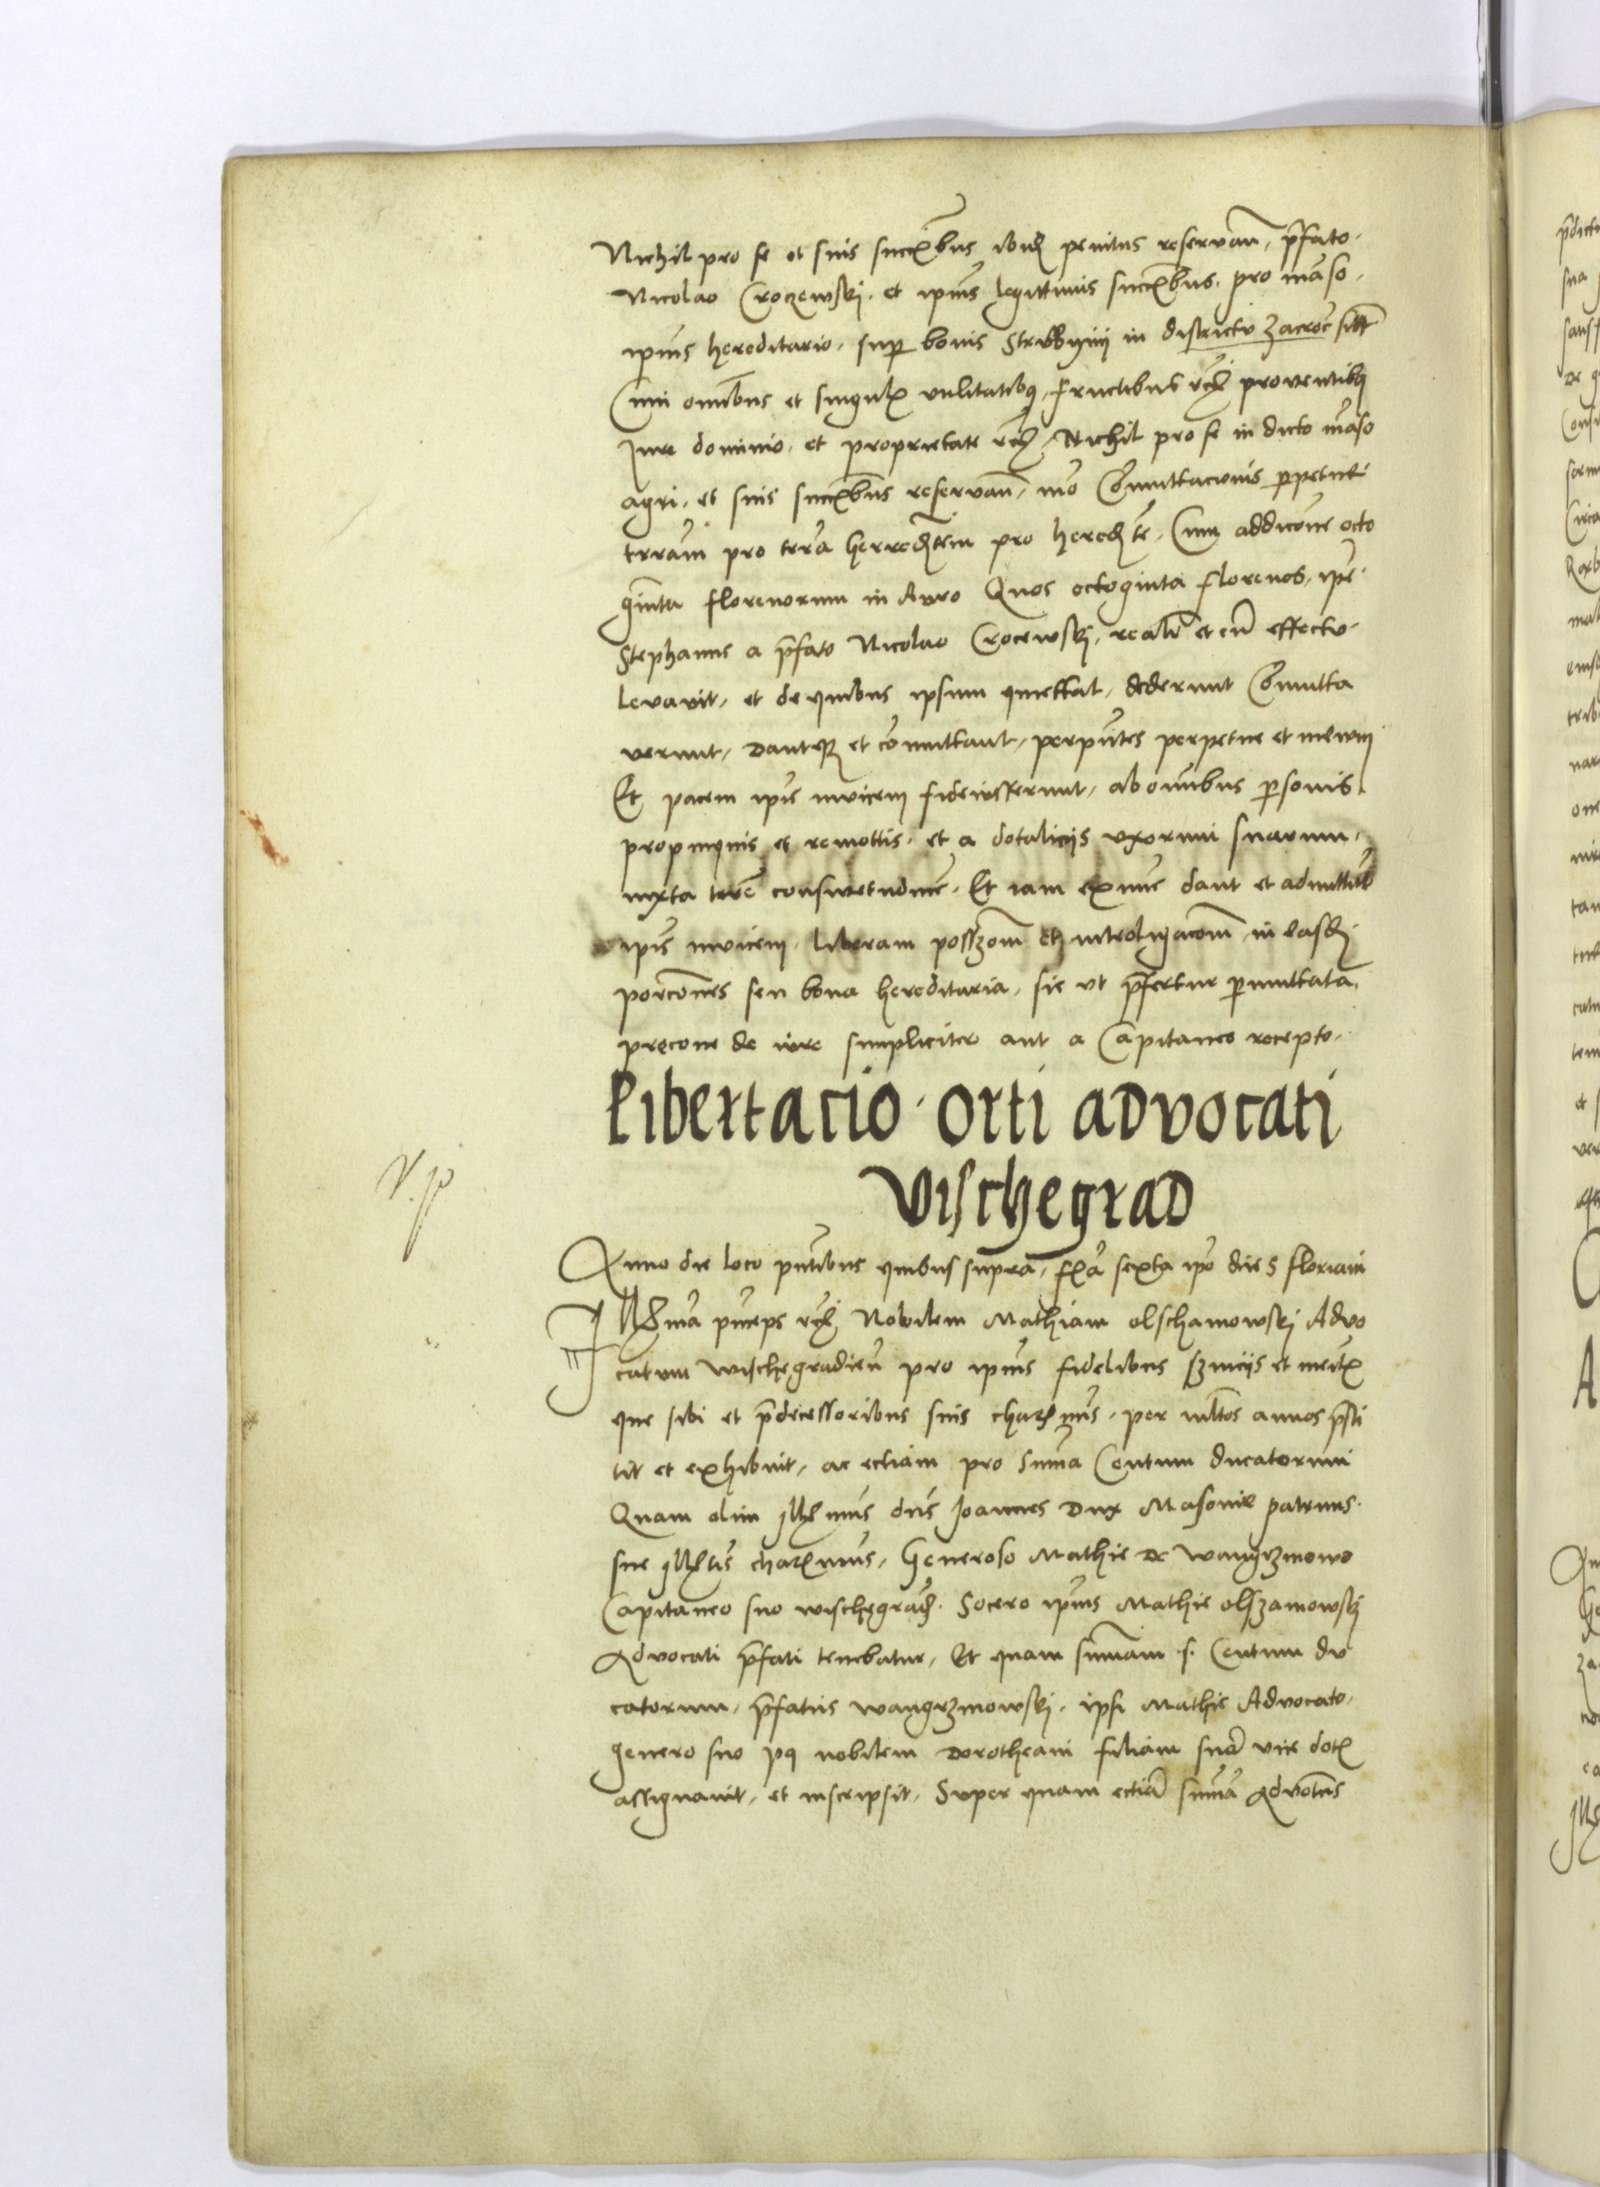 Nichil pro se et suis succrībus ibid penitus reservan̄, p̄fato.
Nicolao Croczewskj. et ipius legittimis succrībus. pro manso.
ipius hereditario. super bonis Strubbyny in districtu zacroc̄ sitt̄
Cum omībus et singulx utilitatibq fructibus rc̄ proventibq
jure dominio. et proprietate rc̄. Nichil pro se in dicto manso
agri. et suis succrībus reservan̄, mo Cōmuttacionis perpetue
terram pro terra herreditem pro heredite. Cum addicōne octo
ginta florenorum in Auro Quos octoginta florenos, ipe.
Stephanus a p̄fato Nicolao Crocewskj, realr̄ et cū effectu.
levavit, et de quibus ipsum quiettat, dederunt Cōmutta
verunt, Dantqz et cōmuttant, per pn̄tes perpetue et in evum
Et pacem ipis invicem fideiusserunt, ab omībus personis
propinquis et remottis. et a dotaliciis uxorum suarum,
iuxta terre consuetudinē. Et iam ex nūc dant et admittūt
ipis invicem. liberam possz̄om et introligacōm in easd
porcōnes seu bona hereditaria, sic ut p̄fertur permuttata,
precone de iure simpliciter aut a Capitaneo recepto.
Libertacio orti advocati
Vischegrad
V. p
Anno die loco pn̄tibus quibus supra, fr̄a sexta ipo die S floriani
Jllr̄ma pnceps rc̄ Nobilem Mathiam olschamowskj Advo
catum Wischegradien̄ pro ipius fidelibus sz̄viciis et meritx
que sibi et p̄decessoribus suis charmis. per mltos annos p̄sti
tit et exhibuit, ac eciam pro sum̄a Centum ducatorum
Quam olim jllr̄mus dn̄s Joannes Dux Masovie patruus.
sue jllr̄tis charmus, Generoso Mathie de Wangrzmowo
Capitaneo suo wischegrad. Socero ipius Mathie olszamowskj
Advocati p̄fati tenebatur, Et quam sum̄am .s. Centum du
catorum, p̄fatus wangrzmowskj. ipsi Mathie Advocato,
genero suo pq nobilem dorotheam filiam suā vice dotx
assignavit, et inscripsit, Super quam eciā sum̄a Advotus